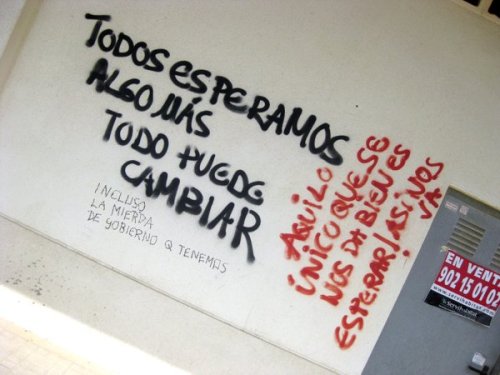 TODOS ESPERAMOS
ALGO MÁS
TODO PUEDE
CAMBIAR
INCLUSO
LA MIERDA
DE GOBIERNO Q TENEMOS
AQUI LO
ÚNICO QUE SE
NOS DA BIEN ES
ESPERAR ¡ASÍ NOS
VA
EN VENTA
902 15 01 02